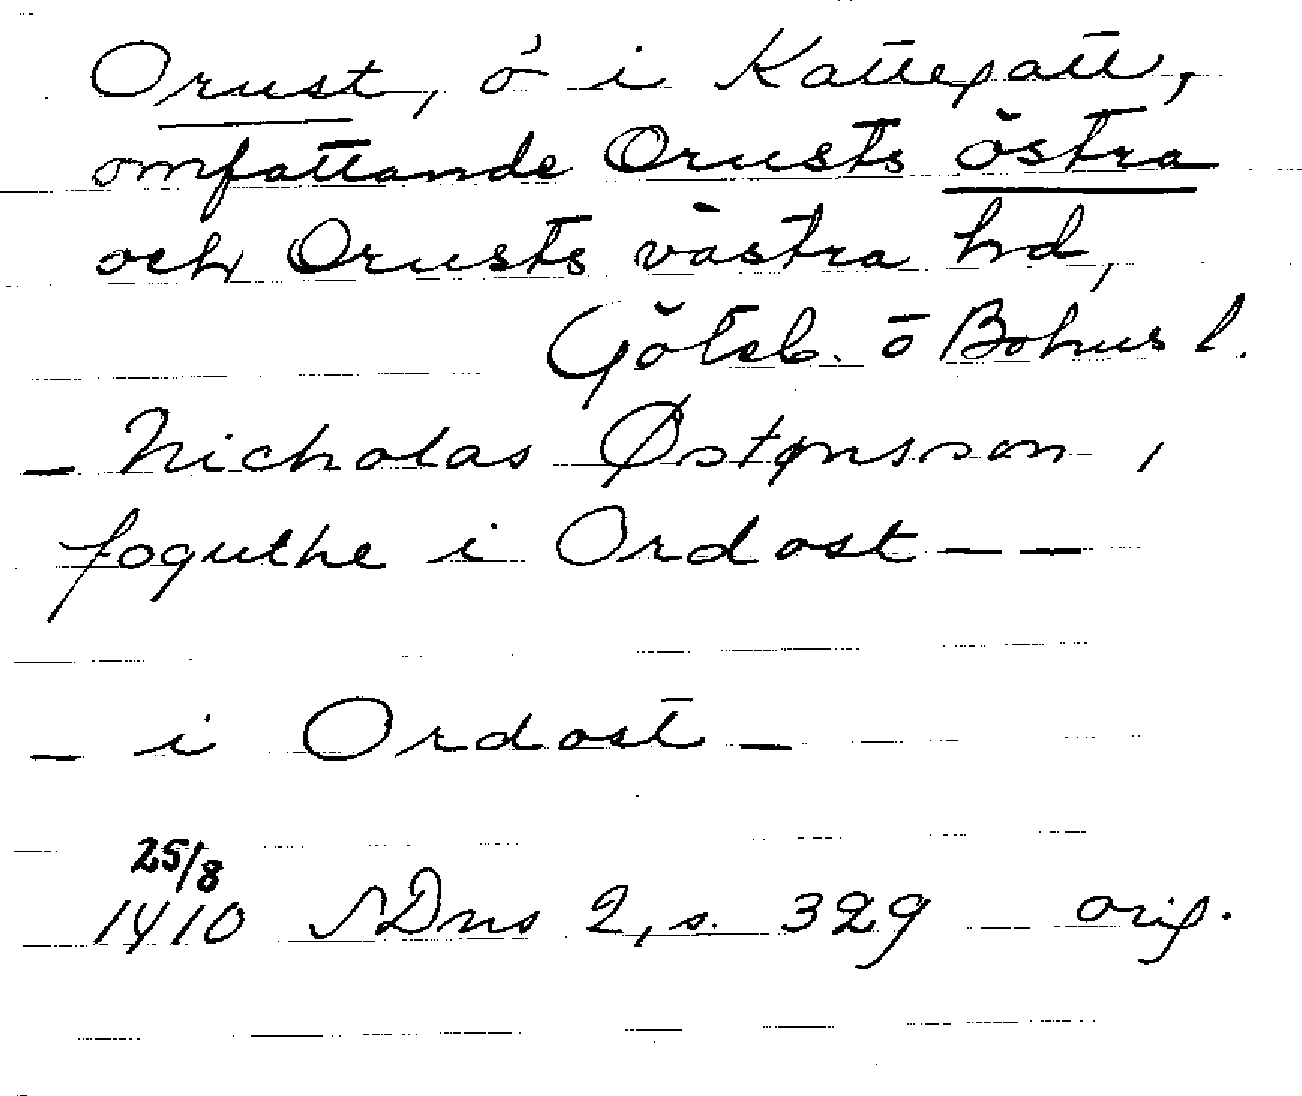 Orust, ö i Kattegatt,
omfattande Orusts östra
och Orusts västra hd,
Göteb. o Bohus l.
- Nicholas Østensson,
foguthe i Ordost - -
- i Ordost -
25/8
1410 SDns 2, s. 329 orig.